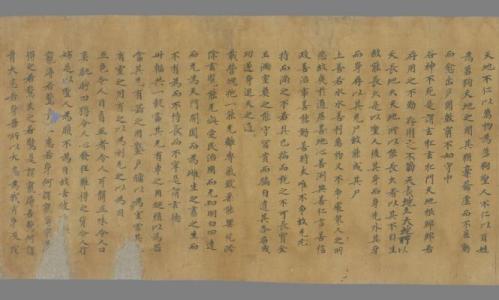 天地不仁以萬物為芻狗聖人不仁以百姓
為芻狗天地之間其猶橐籥虛而不屈動
而愈出多聞數窮不如守中
谷神不死是謂玄牝玄牝門天地根綿綿若
存用之不勤
天長地久天地所以能長久者以其不自生
故能長久是以聖人後其身而身先外其身
而身存以其無尸故能成其尸
上善若水水善利萬物又不爭處衆人之所
惡故幾於道居善地心善淵與善仁言善信
政善治事善能動善時夫唯不爭故無尤
持而滿之不若其已揣而銳之不可長寶金
玉滿室莫之能守富貴而驕自遺其咎名成
功遂身退天之道
載營魄抱一能無離專氣致柔能嬰兒滌
除玄覽能無疵愛民治國而無知明白四達
而無為天門開闔而為雌生之畜之生而
不有為而不恃長而不宰是謂玄德
卅輻共一轂當其無有車之用埏埴以為器
當其無有器之用鑿戶牖以為室當其無
有室之用有之以為利無之以為用
五色令人目盲五音令人耳聾五味令人口
爽馳騁田獵令人心發狂難得之貨令人行
妨是以聖人為腹不為目故去彼取此
寵辱若驚貴大患若身何謂寵辱為下
得之若驚失之若驚是謂寵辱若驚何謂
貴大患若身吾所以有大患為我有身及我